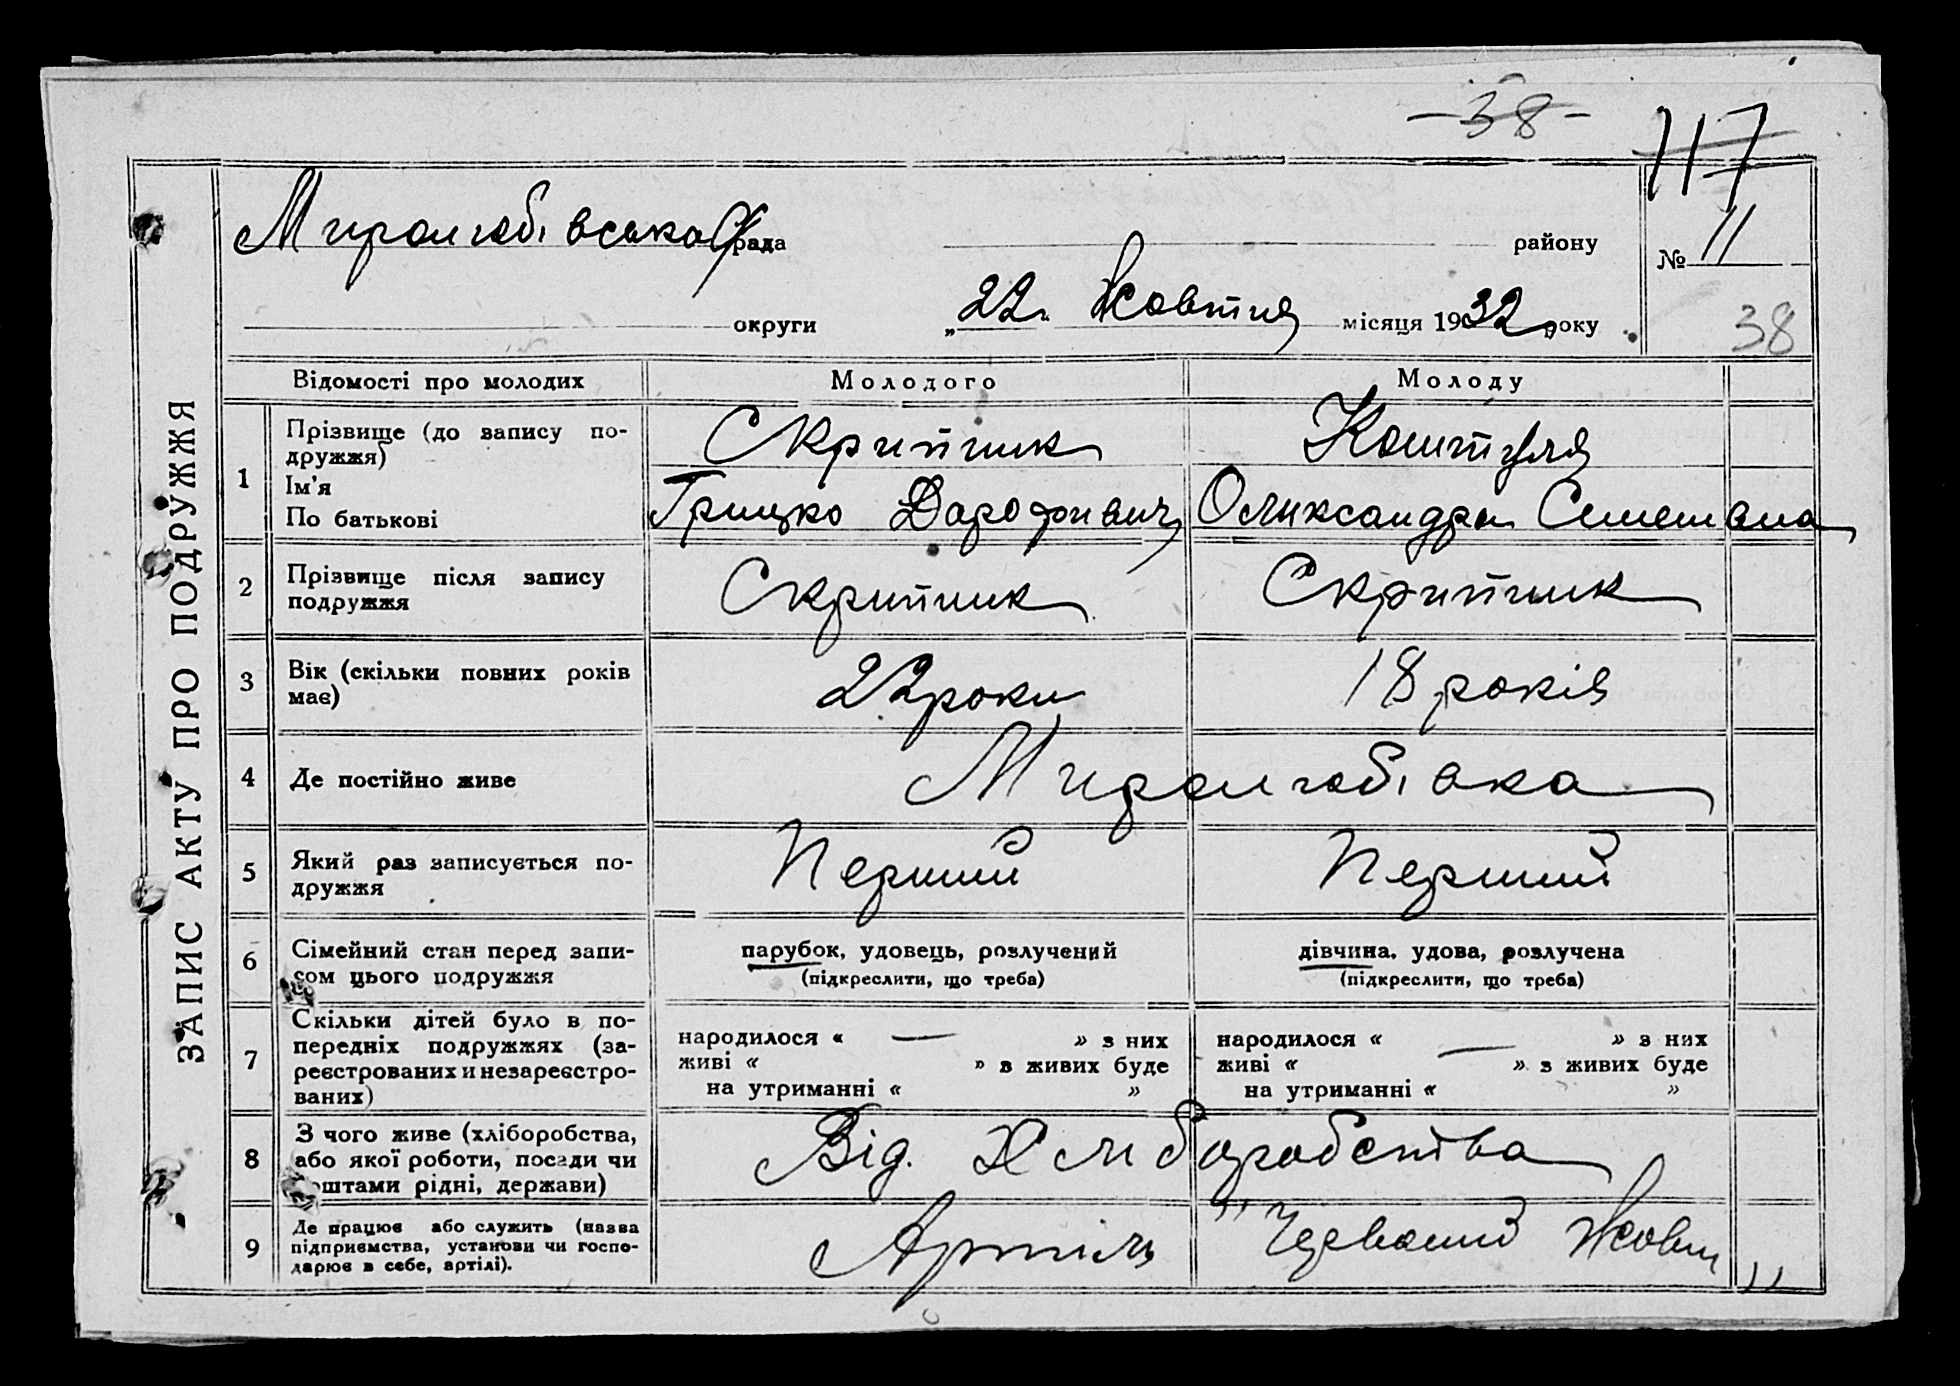 - 38 -
117
Миролюбівська рада району
№ 11
округи „22" Жовтня місяця 1932 року
38
ЗАПИС АКТУ ПРО ПОДРУЖЖЯ
Відомості про молодих Молодого Молоду
1 Прізвище (до запису по-
дружжя) Скрипник Коштуля
Ім'я
По батькові Грицко Дарофивич Олиександра Семеновна
2 Прізвище після запису
подружжя Скрипник Скрипник
3 Вік (скільки повних років
має) 22 роки 18 років
4 Де постійно живе Миролюбівка
5 Який раз записується по-
дружжя Перший Перший
6 Сімейний стан перед запи-
сом цього подружжя
парубок, удовець, розлучений дівчина, удова, розлучена
(підкреслити, що треба) (підкреслити, що треба)
7 Скільки дітей було в по-
передніх подружжях (за-
реєстрованих и незареєстро-
ваних)
народилося « — » з них народилося « — » з них
живі « » в живих буде живі « » з живих буде
на утриманні « » на утриманні « »
8 З чого живе (хліборобства,
або якої роботи, посади чи
коштами рідні, держави) Від. Хлиборобства
9 Де працює або служить (назва
підприємства, установи чи госпо-
дарює в себе, артілі). Артіль "Червоний Жовтн"